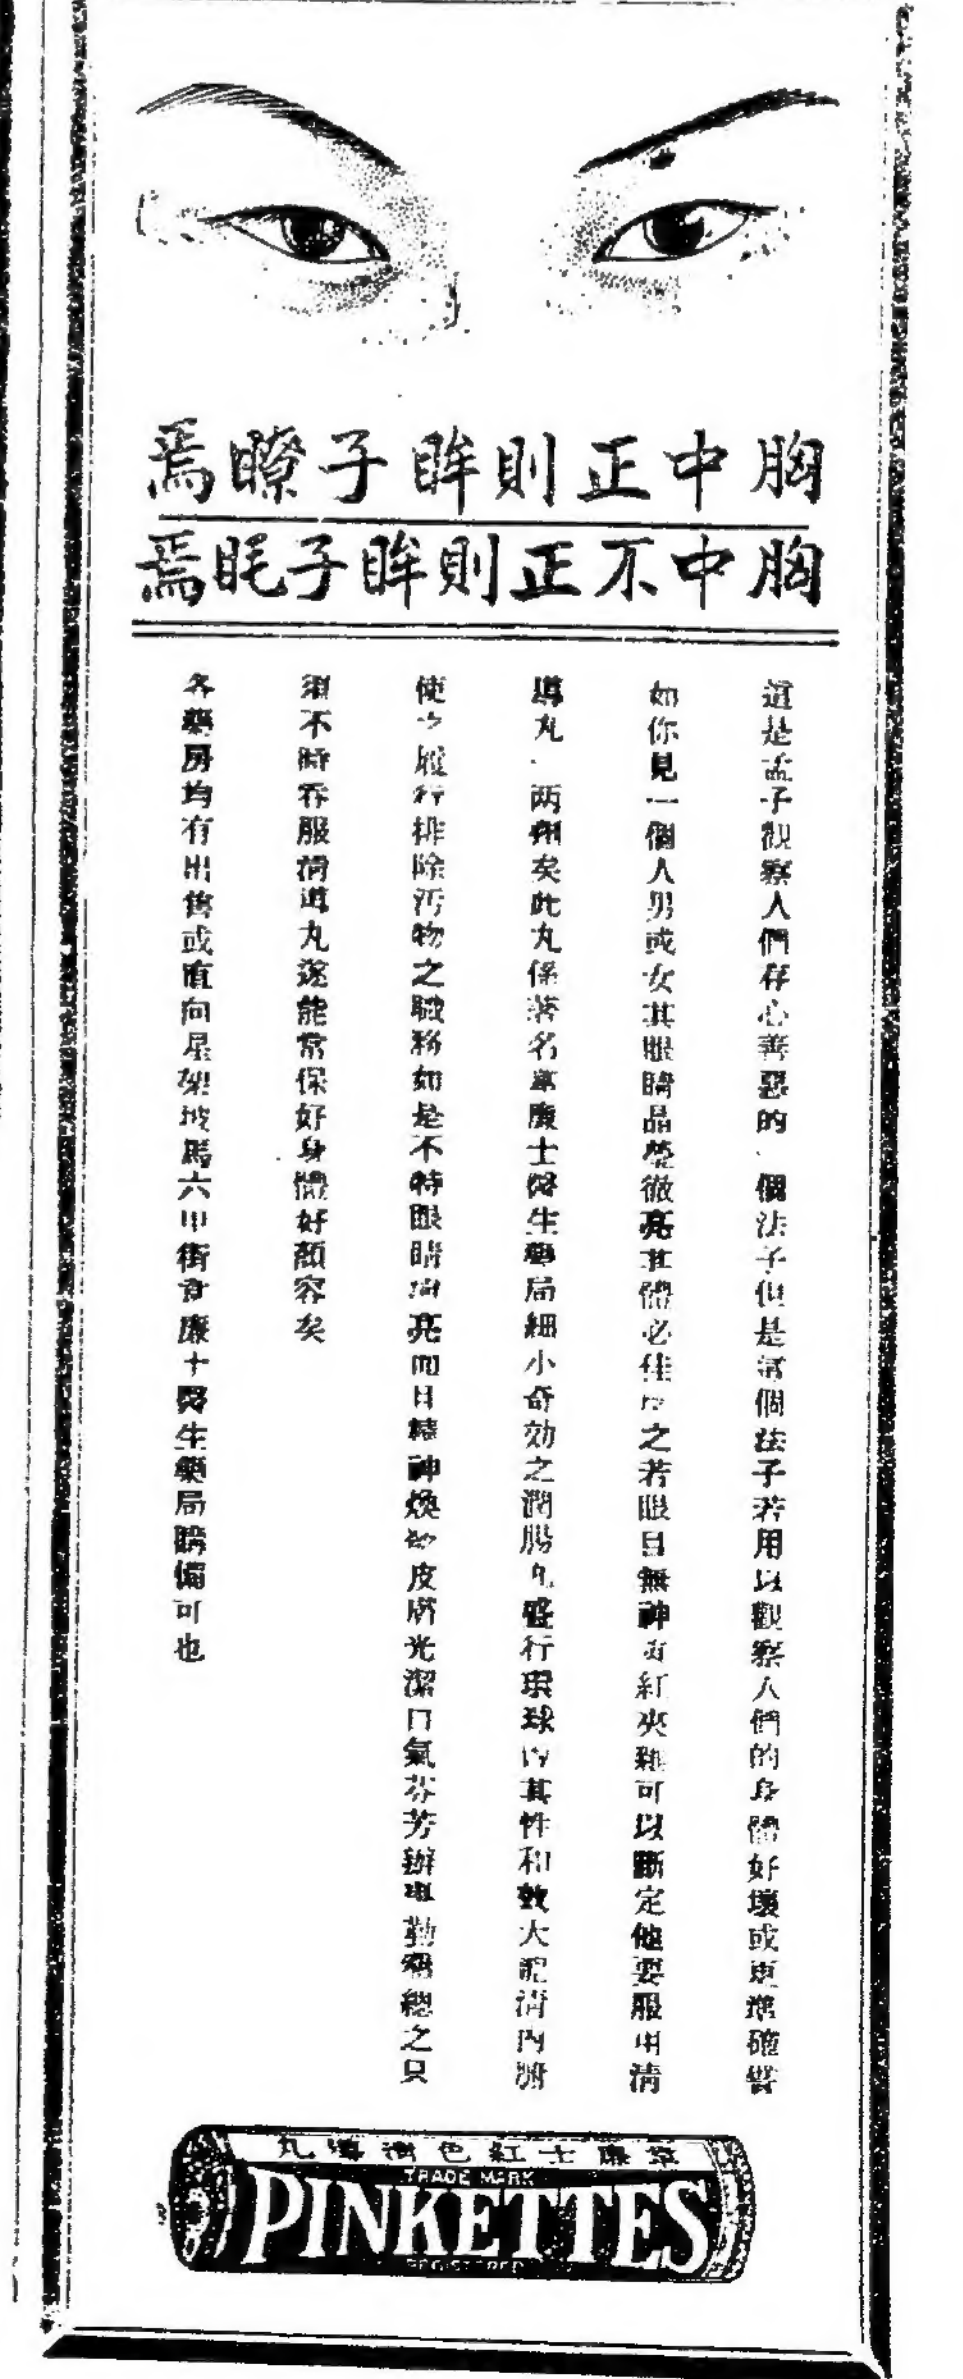 胸中正則眸子瞭焉
胸中不正則眸子眊焉
這是孟子觀察人們存心善惡的一個法子但是這個法子若用以觀察人們的身體好壞或更準確譬
如你見一個人男或女其眼睛晶瑩徹亮其體必佳反之若眼目無神赤紅夾雜可以斷定他要服用清
導丸一兩劑矣此丸係著名韋廉士醫生藥局細小奇効之潤腸丸盛行環球內其性和效大能清內臟
使之履行排除汚物之職務如是不特眼睛 亮而且精神煥發皮膚光潔口氣芬芳辦事勤奮總之只
須不時吞服清導丸遂能常保好身體好顏容矣
各藥房均有出售或直向星架坡馬六甲街韋廉士醫生藥局購備可也
韋廉士紅色清導丸
TRADE MARK
PINKETTES
REGISTERED